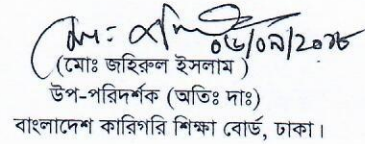 ০৬/০৯/২০২৮
(মোঃ জহিরুল ইসলাম )
উপ-পরিদর্শক (অতিঃ দাঃ)
বাংলাদেশ কারিগরি শিক্ষা বোর্ড, ঢাকা।